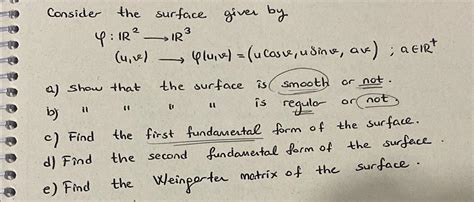 Consider the surface given by
φ : IR² → IR³
(u,v) → φ(u,v) = (u cosv, u sinv, av) ; a ∈ IR⁺
a) Show that the surface is smooth or not.
b) " " " " is regular or not.
c) Find the first fundamental form of the surface.
d) Find the second fundamental form of the surface.
e) Find the Weingarten matrix of the surface.